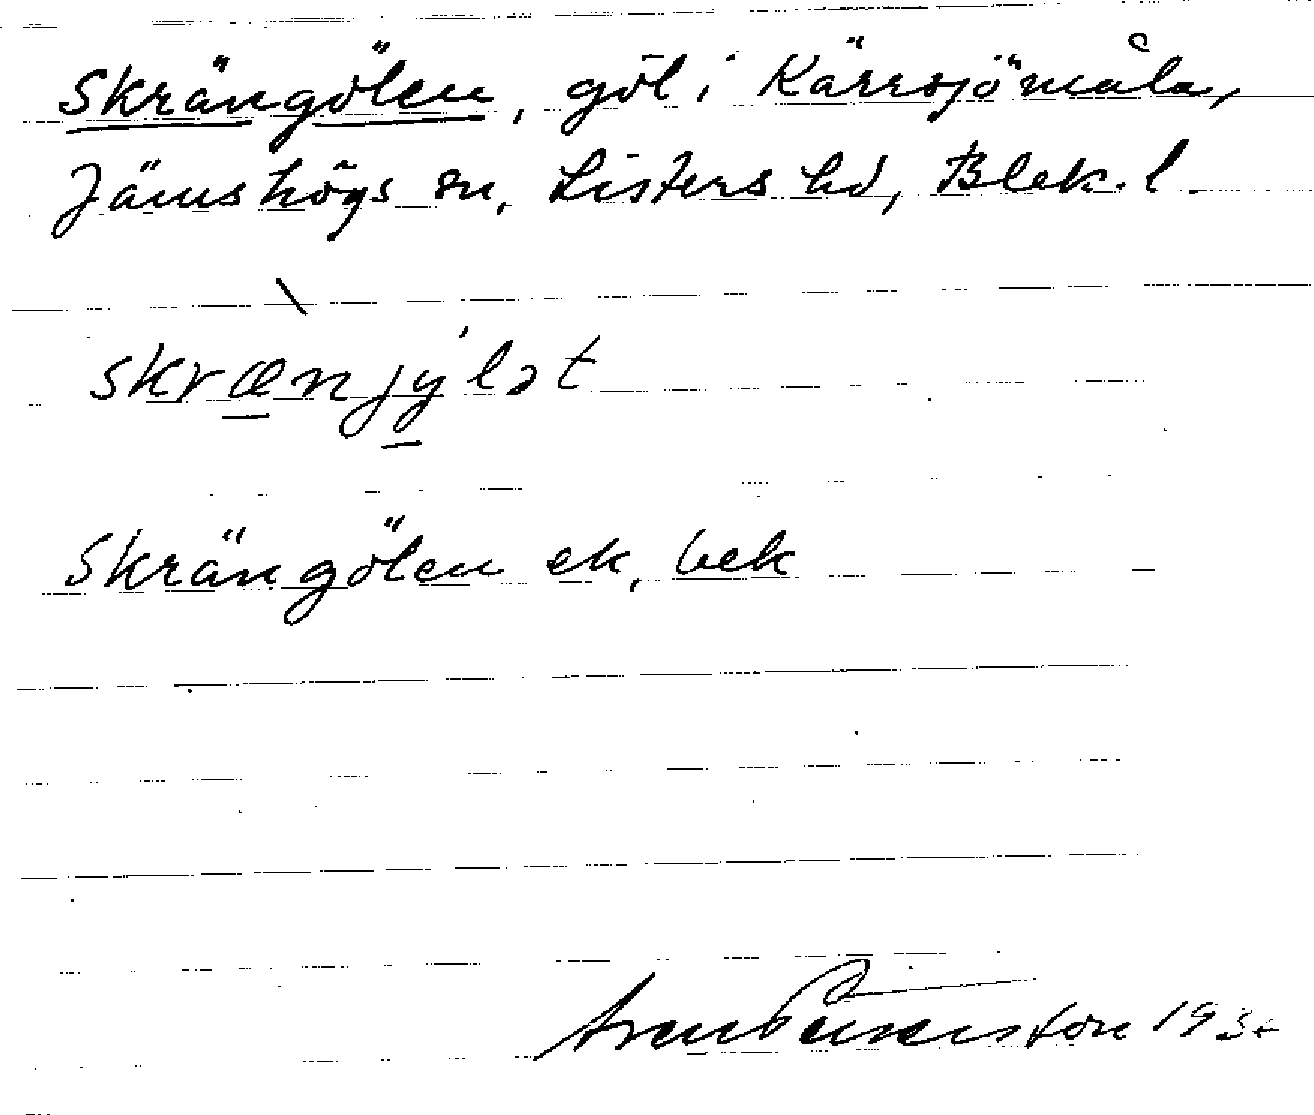 Skrängölen, göl i Kärrsjömåla,
Jämshögs sn, Listers hd, Blek. l.
skrænjýlət
Skrängölen ek, bek